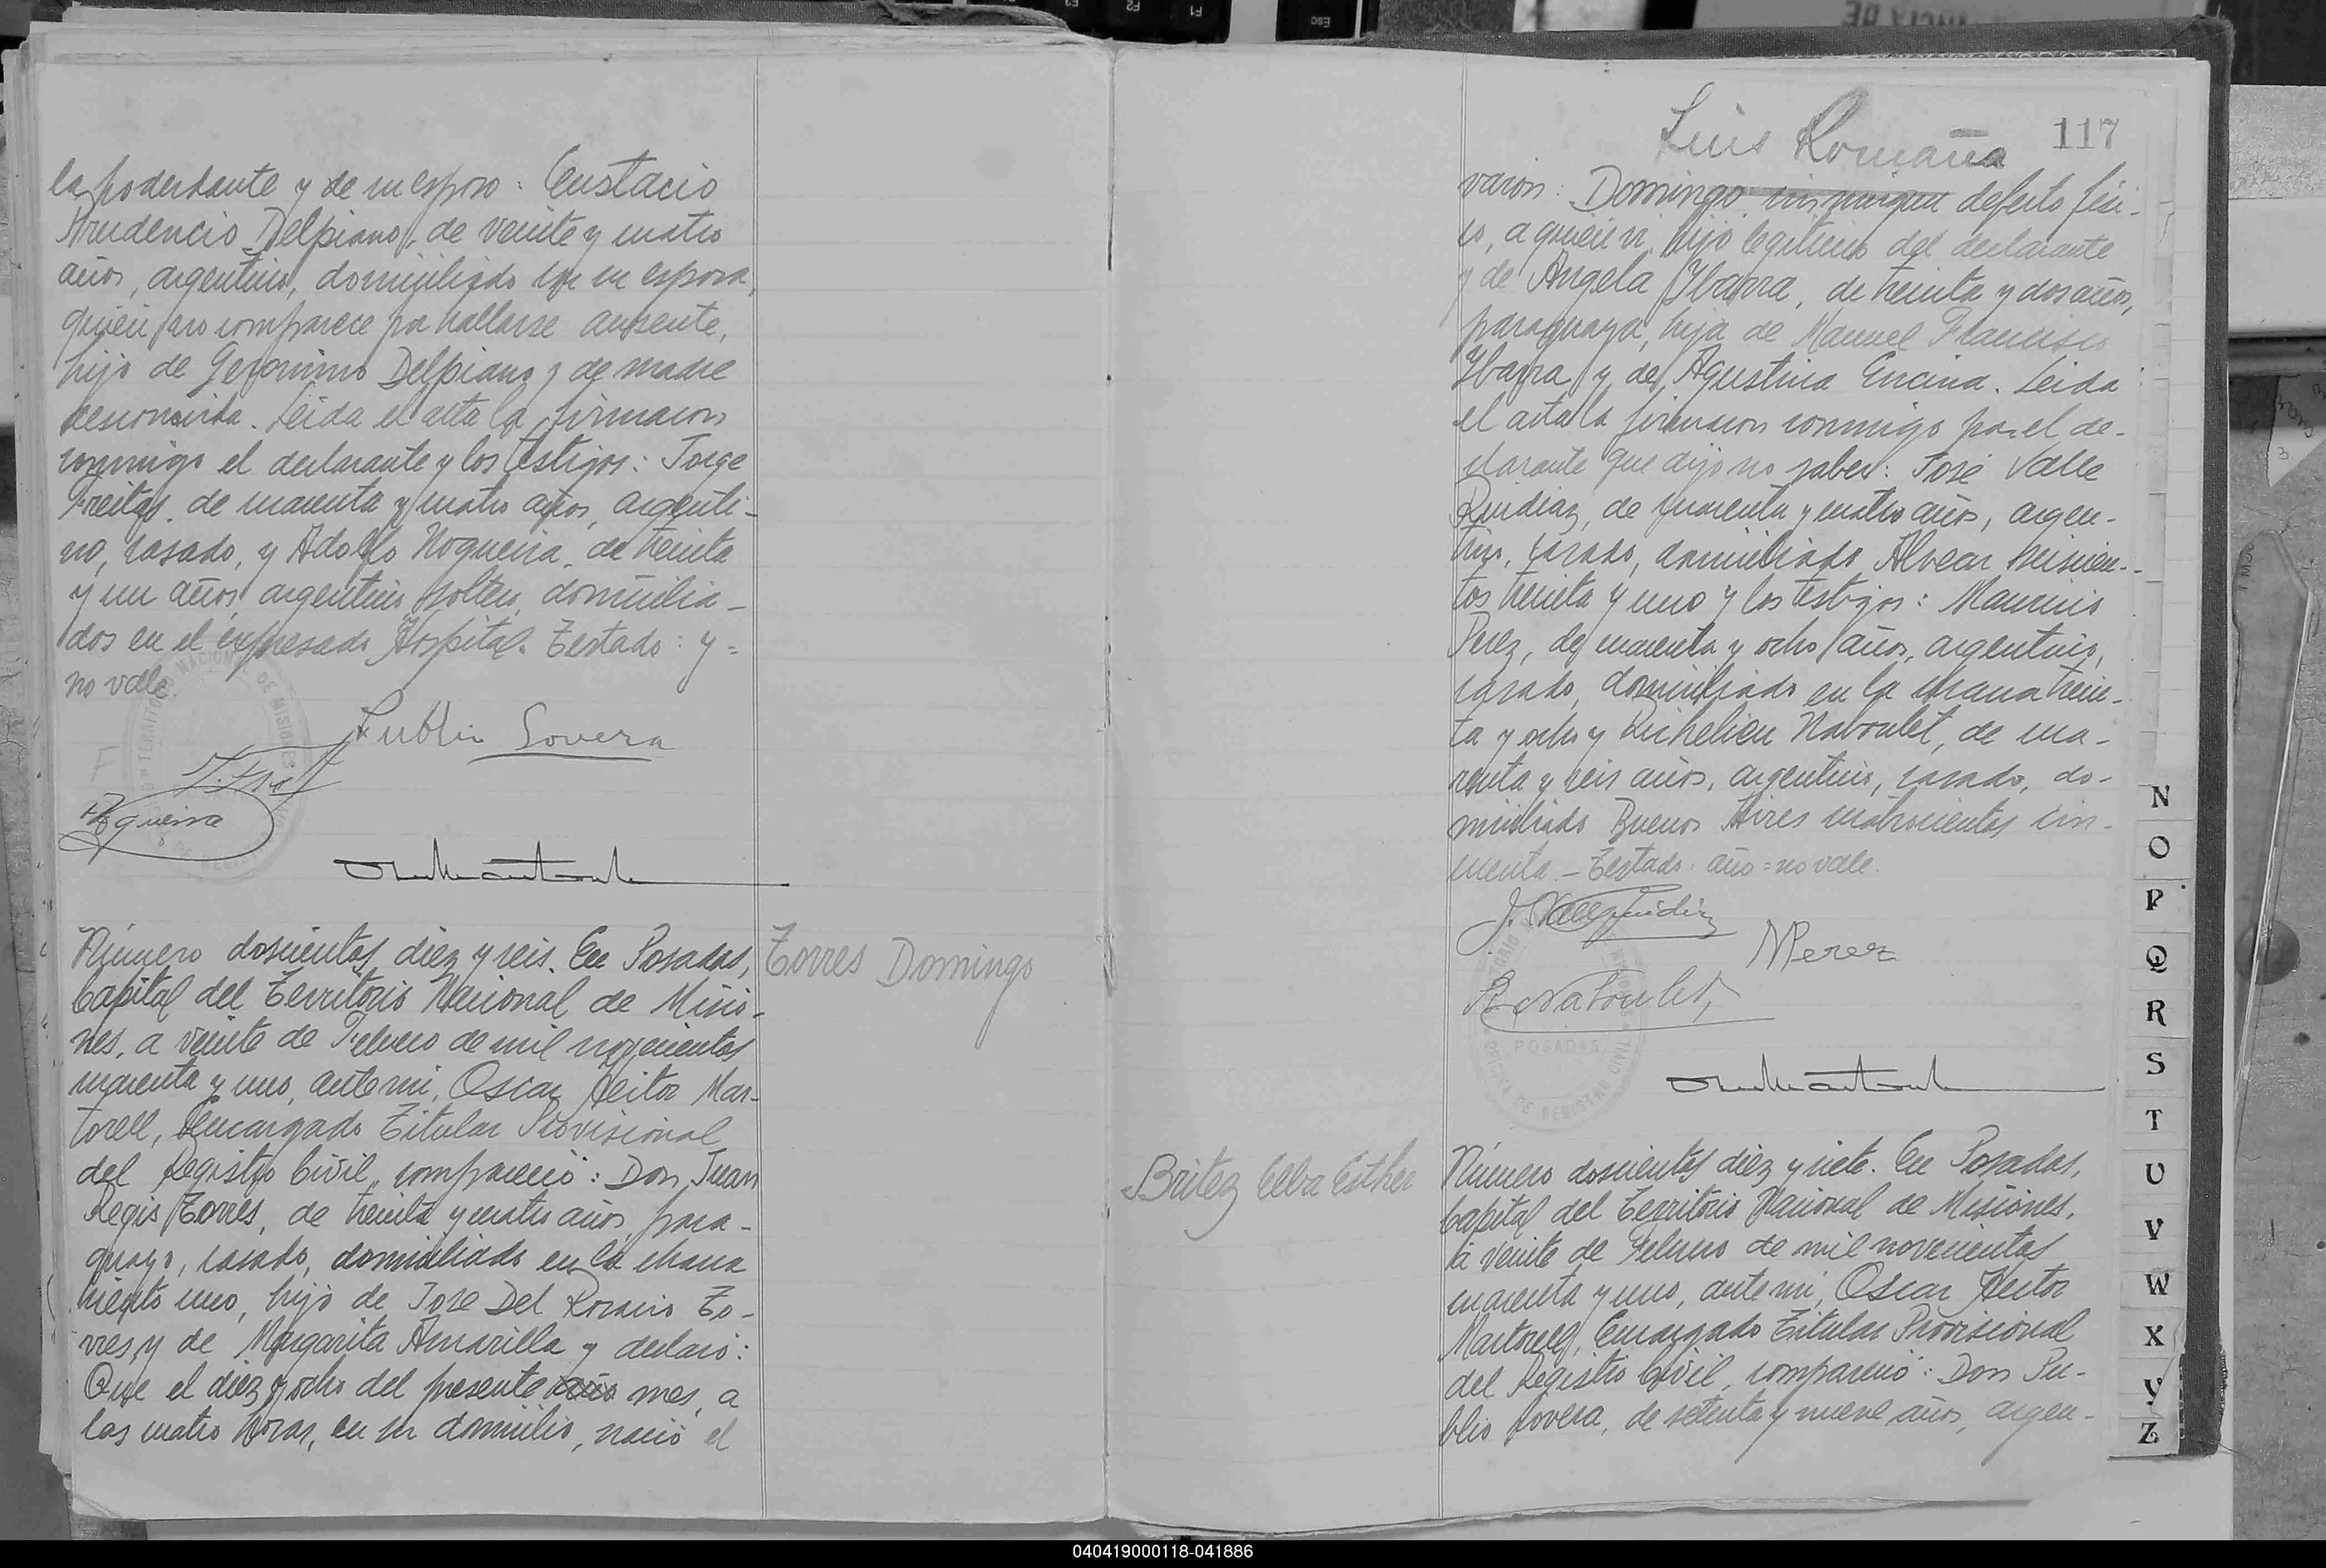 la poderdante y de su esposo: Eustacio
Prudencio Delpiano, de veinte y cuatro
años, argentino, domiciliado con su esposa,
quien no comparece por hallarse ausente,
hijo de Geronimo Delpiano y de madre
desconocida. Leida el acta la firmaron
conmigo el declarante y los testigos: Jorge
Freitas, de cuarenta y cuatro años, argenti-
no, casado, y Adolfo Nogueira, de treinta
y un años, argentino, soltero, domicilia-
dos en el expresado Hospital. Testado: y =
no vale.
Publio Lovera
Número doscientos diez y seis. En Posadas,
Capital del Territorio Nacional de Misio-
nes, a veinte de Febrero de mil novecientos
cuarenta y uno, ante mi, Oscar Heitor Mar-
torell, Encargado Titular Provisional
del Registro Civil, compareció: Don Juan
Regis Torres, de treinta y cuatro años, para-
guayo, casado, domiciliado en la chacra
ciento uno, hijo de Jose Del Rosario To-
rres y de Margarita Amarilla y declaró:
Que el diez y ocho del presente año mes, a
las cuatro horas, en su domicilio, nació el
Torres Domingo
117
Luis Romaña
varon: Domingo sin ningun defecto físi-
co, a quien vi, hijo legitimo del declarante
y de Angela Ybarra, de treinta y dos años,
paraguaya, hija de Manuel Francisco
Ybarra y de Agustina Encina. Leida
el acta la firmaron conmigo por el de-
clarante que dijo no saber: José Valle
Quidiaz, de cuarenta y cuatro años, argen-
tino, casado, domiciliado Alvear seiscien-
tos treinta y uno y los testigos: Mauricio
Perez, de cuarenta y ocho años, argentino,
casado, domiciliado en la chacra trein-
ta y ocho y Richelieu Naboulet, de cua-
renta y seis años, argentino, casado, do-
miciliado Buenos Aires cuatrocientos cin-
cuenta. - Testado: año = no vale.
MPerez
R. Naboulet
POSADAS
Britez Elba Esther
Número doscientos diez y siete. En Posadas,
Capital del Territorio Nacional de Misiones,
a veinte de Febrero de mil novecientos
cuarenta y uno, ante mi, Oscar Heitor
Martorell, Encargado Titular Provisional
del Registro Civil, compareció: Don Pu-
blio Lovera, de setenta y nueve años, argen-
N
O
P
Q
R
S
T
U
V
W
X
Y
Z
040419000118-041886